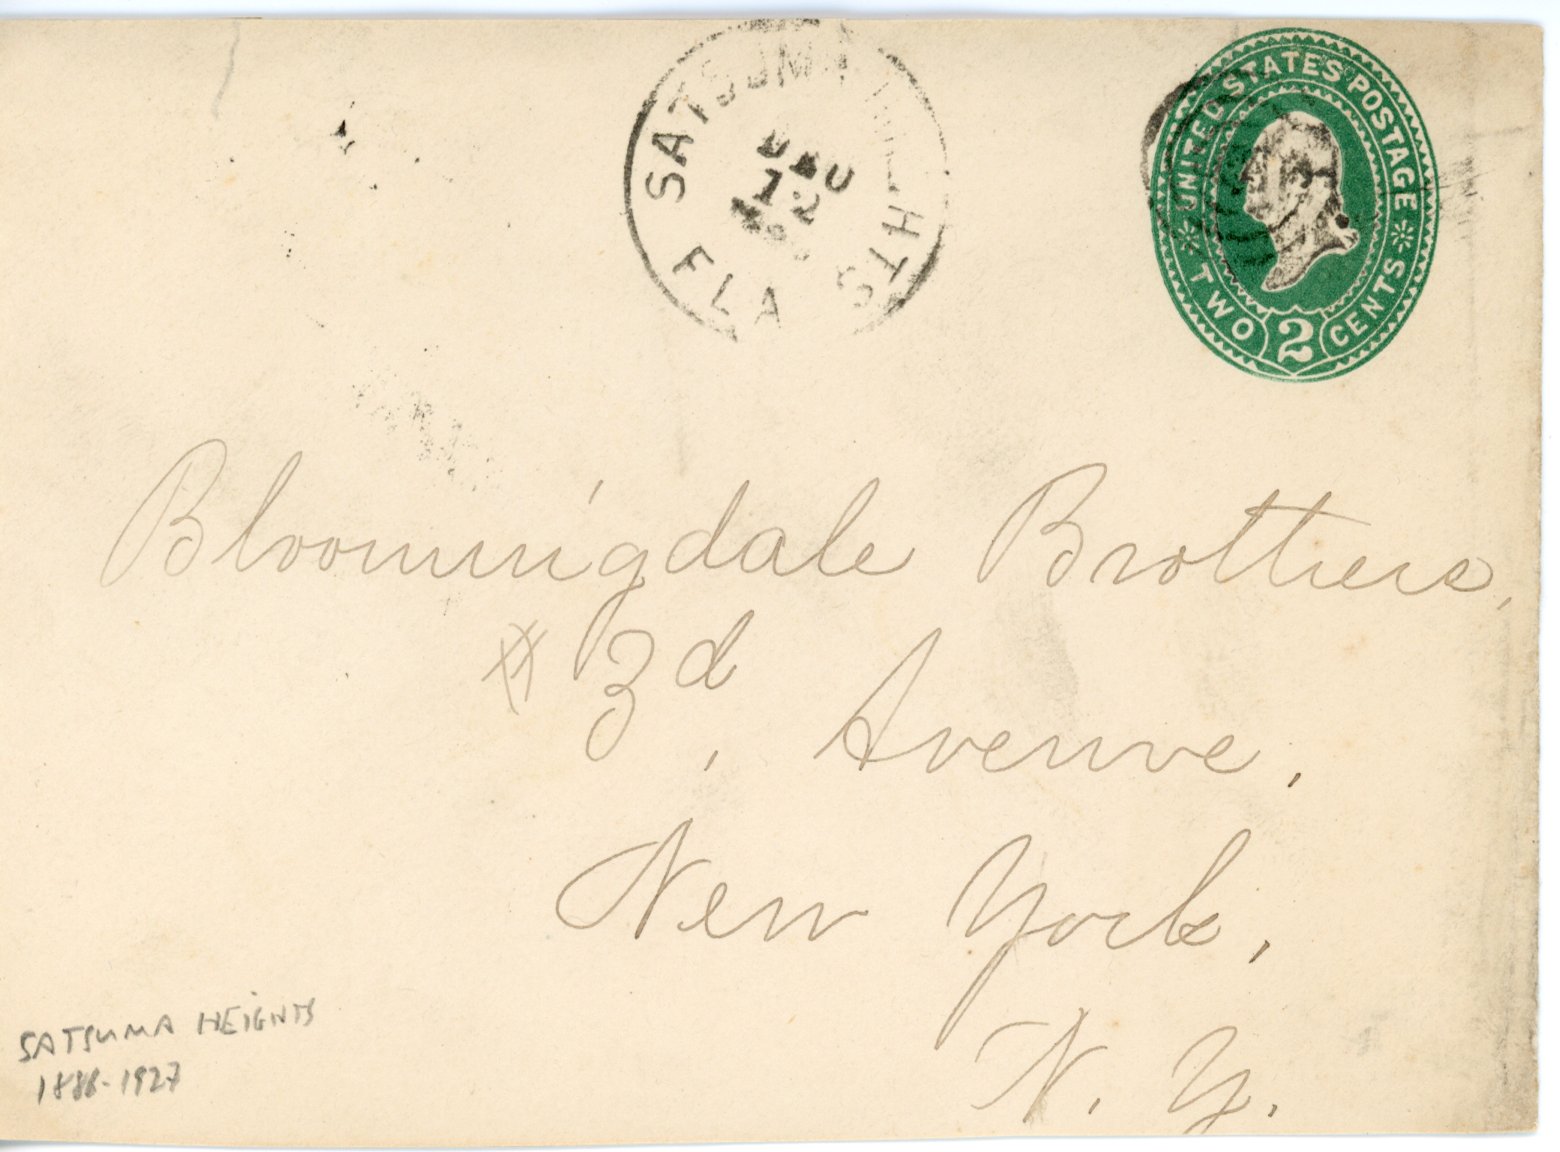 SATSUMA HTS
FLA
DEC
12
UNITED STATES POSTAGE
TWO 2 CENTS
Bloomingdale Brothers,
# 3d, Avenue.
New York,
N. Y.
SATSUMA HEIGHTS
1888-1927